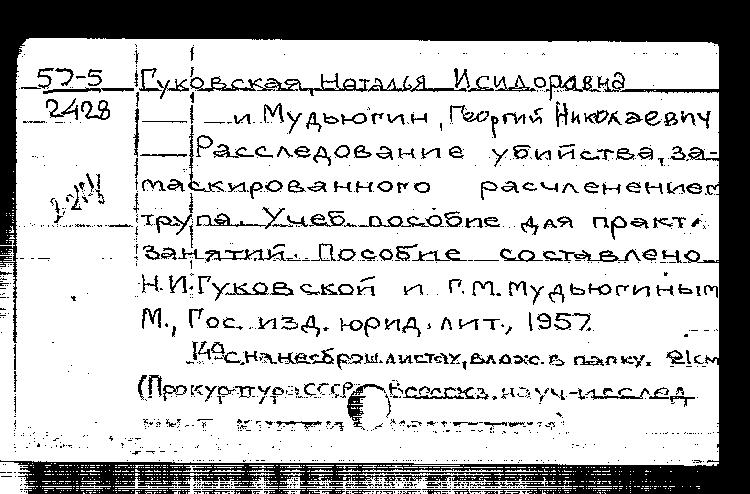 57-5 Гуковская, Наталья Исидоровна
2428 и Мудьюгин, Георгий Николаевич
Расследование убийства, за-
маскированного расчленением
трупа. Учеб. пособие для практ.
занятий. Пособие составлено
Н.И.Гуковской и Г.М.Мудьюгиным
М., Гос. изд. юрид. лит., 1957.
149 с. на несброш. листах, влож. в папку. 21 см
(Прокуратура СССР. Всесоюз. науч-исслед
ин-т